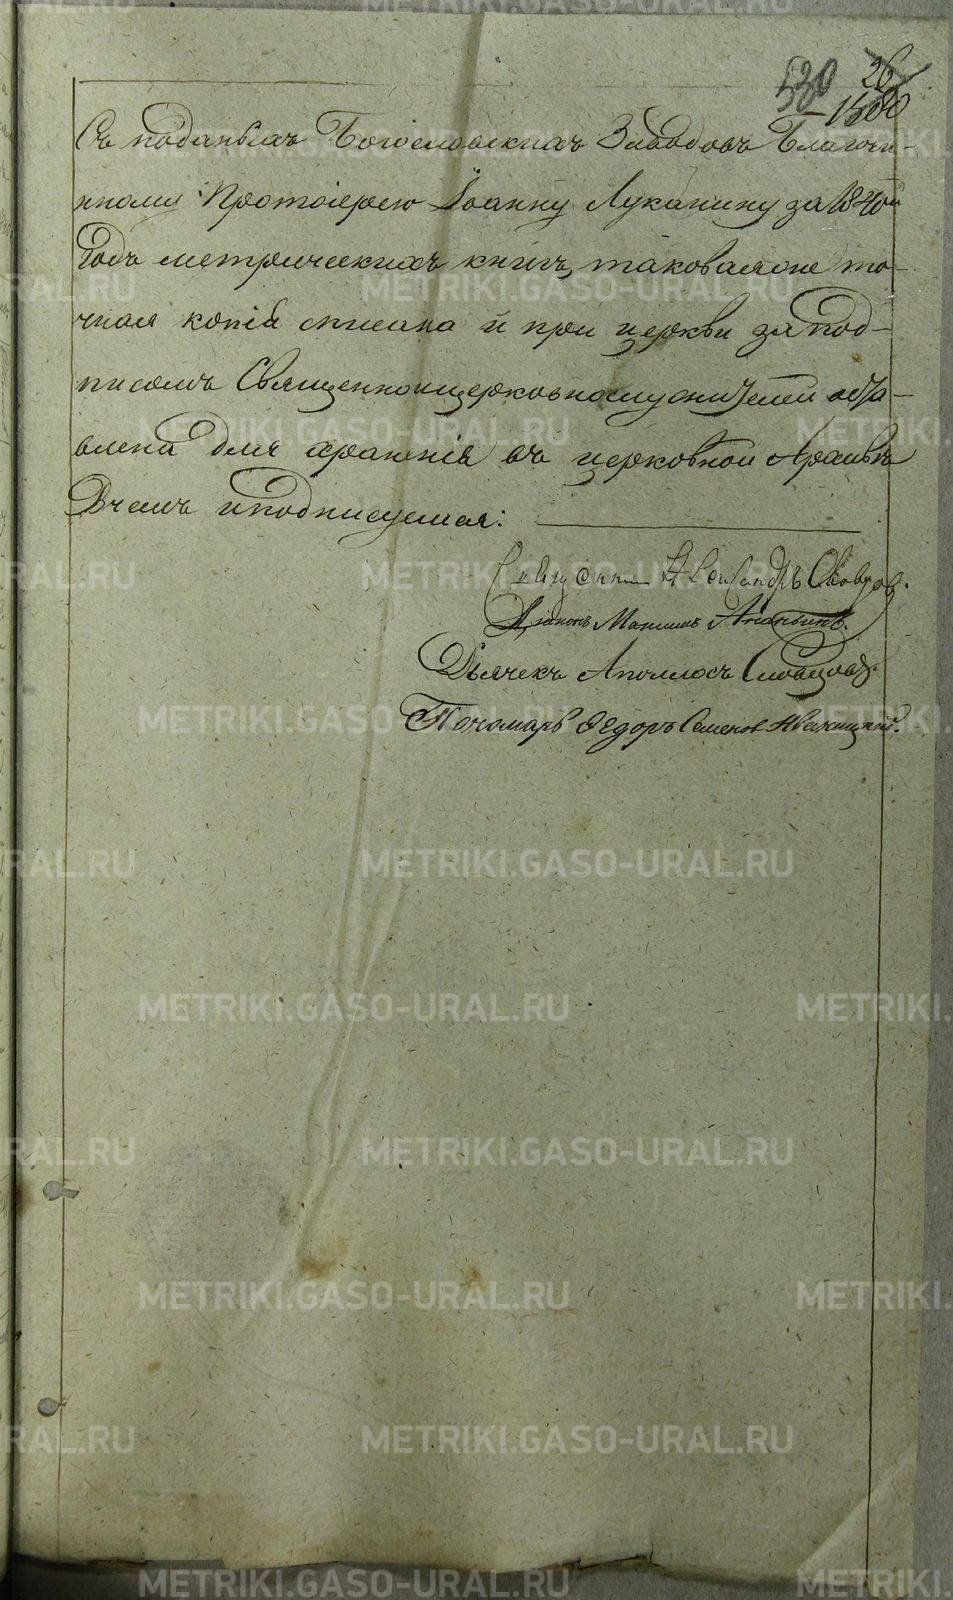 530 26
1580
Съ поданныхъ Богословскихъ Заводовъ Благочи-
нному Протоіерею Іоанну Луканину за 1840й
Годъ метрическихъ книгъ, таковая же то-
чная копія списана и при церкви за под-
писомъ Священноицерковнослужителей оста-
влена для храненія въ церковной Архивѣ
Въ чемъ и подписуемся:
Священникъ Александръ
Діаконъ Максимъ
Дьячекъ Аполлосъ Словцовъ.
Пономарь Ѳедоръ Семенов
METRIKI.GASO-URAL.RU